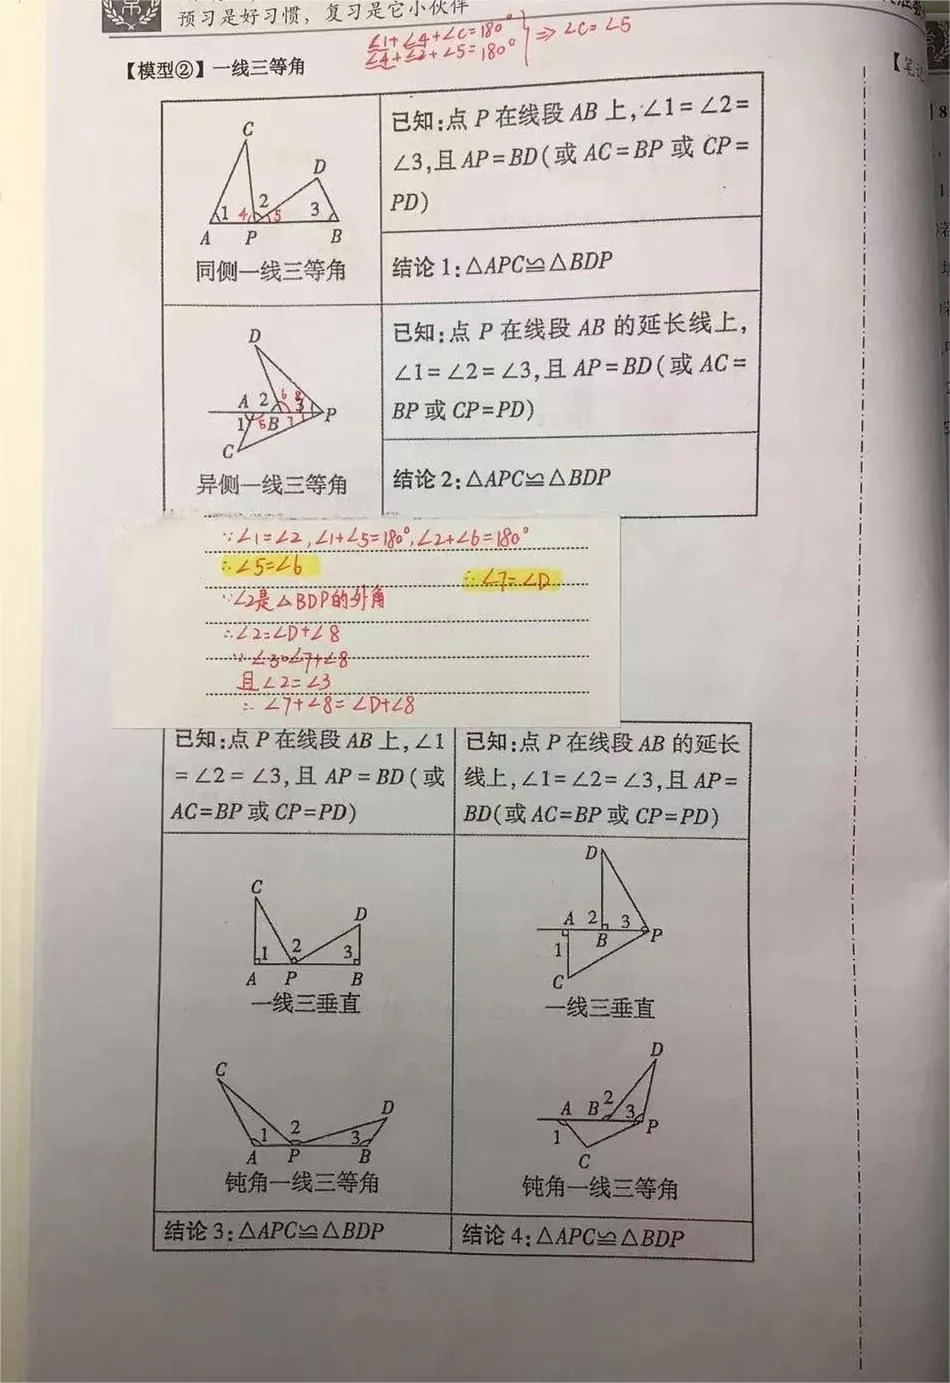 预习是好习惯，复习是它小伙伴
∠1+∠4+∠C=180°
∠4+∠2+∠5=180°
⇒∠C=∠5
【模型②】一线三等角
【笔记
C
D
1
4
2
5
3
A P B
同侧一线三等角
已知:点 P 在线段 AB 上,∠1=∠2=
∠3,且 AP=BD(或 AC=BP 或 CP=
PD)
结论 1:△APC≌△BDP
D
A 2 6 8 3
1 5 B 7 P
C
异侧一线三等角
已知:点 P 在线段 AB 的延长线上,
∠1=∠2=∠3,且 AP=BD(或 AC=
BP 或 CP=PD)
结论 2:△APC≌△BDP
∵∠1=∠2,∠1+∠5=180°,∠2+∠6=180°
∴∠5=∠6
∴∠7=∠D
∵∠2是△BDP的外角
∴∠2=∠D+∠8
∵∠3=∠7+∠8
且∠2=∠3
∴∠7+∠8=∠D+∠8
已知:点 P 在线段 AB 上,∠1
=∠2=∠3,且 AP=BD(或
AC=BP 或 CP=PD)
已知:点 P 在线段 AB 的延长
线上,∠1=∠2=∠3,且 AP=
BD(或 AC=BP 或 CP=PD)
C
D
1 2 3
A P B
一线三垂直
D
A 2 3
1 B P
C
一线三垂直
C
D
1 2 3
A P B
钝角一线三等角
D
A B 2 3
1 P
C
钝角一线三等角
结论 3:△APC≌△BDP
结论 4:△APC≌△BDP